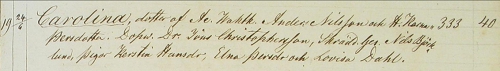 19 24/6 Carolina, dotter af Ae. Wahlk. Anders Nilsson och H. Karna 333 40
Persdotter. Dopv. Dr. Jöns Christophersson, Skrädd. Ges. Nils Björk
lund, pigor Kerstin Hansdr, Elna Persdr och Lovisa Dahl.